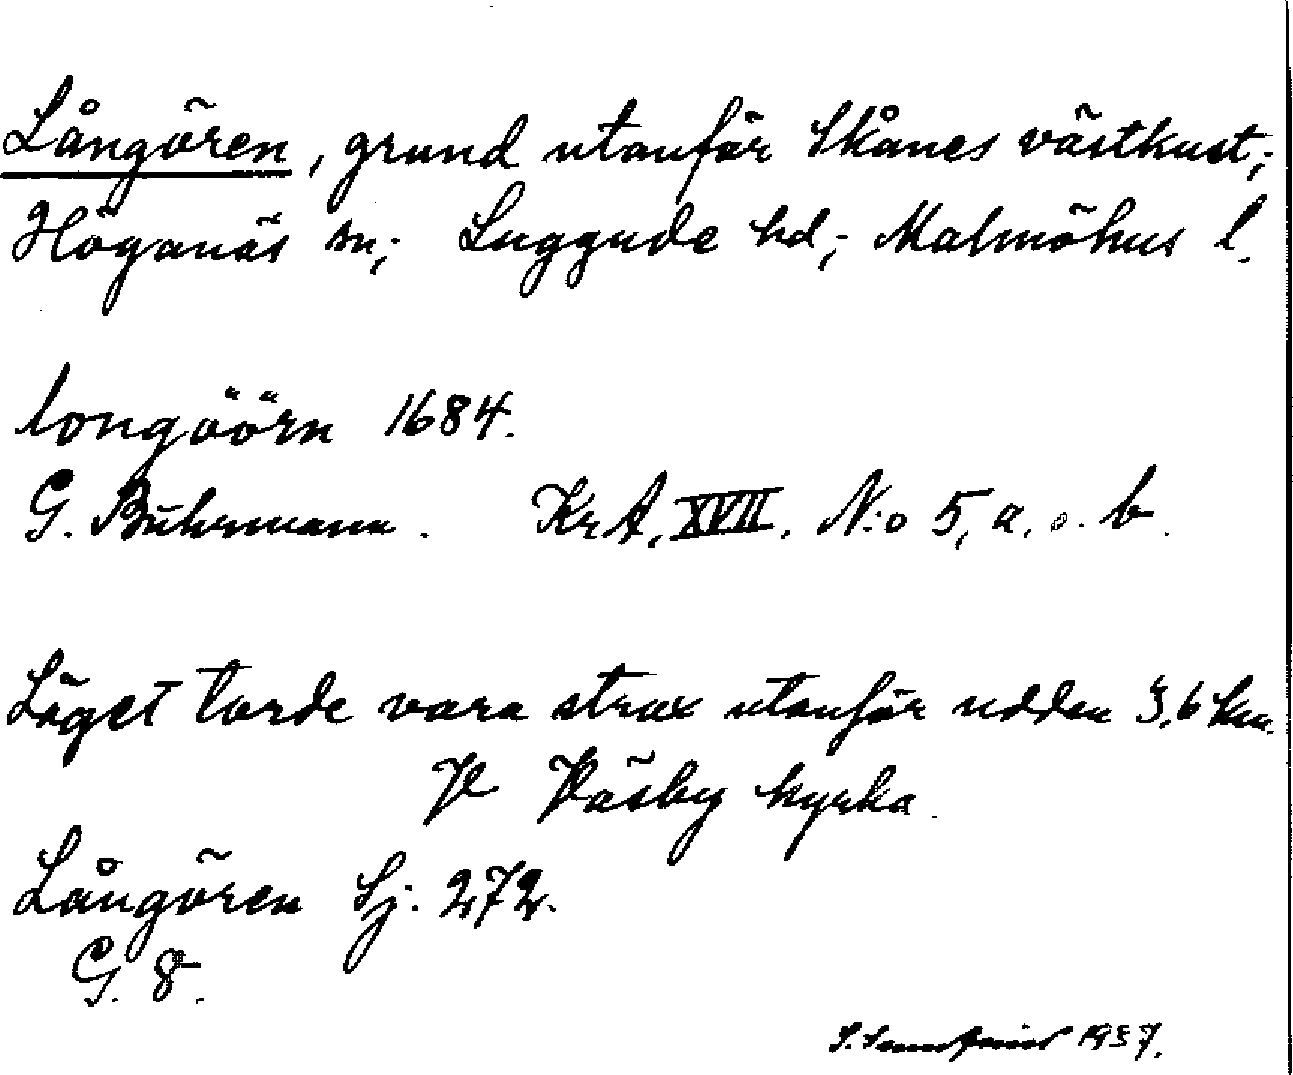 Långören, grund utanför Skånes västkust;
Höganäs sn; Luggude hd; Malmöhus l.
longöörn 1684.
G. Buhrmann. KrA, XVII. N:o 5, a. o. b.
Läget torde vara strax utanför udden 3,6 km.
V Väsby kyrka.
Långören Sj. 272.
G. 8.
1937.